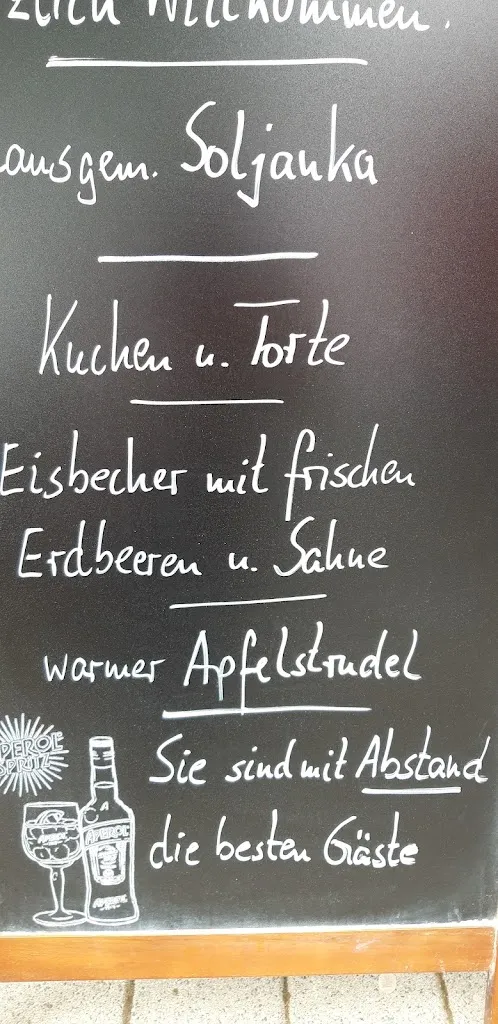 zlich Willkommen.
ausgem. Soljanka
Kuchen u. Torte
Eisbecher mit frischen
Erdbeeren u. Sahne
warmer Apfelstrudel
Sie sind mit Abstand
die besten Gäste
PEROL
SPRITZ
APEROL
APEROL